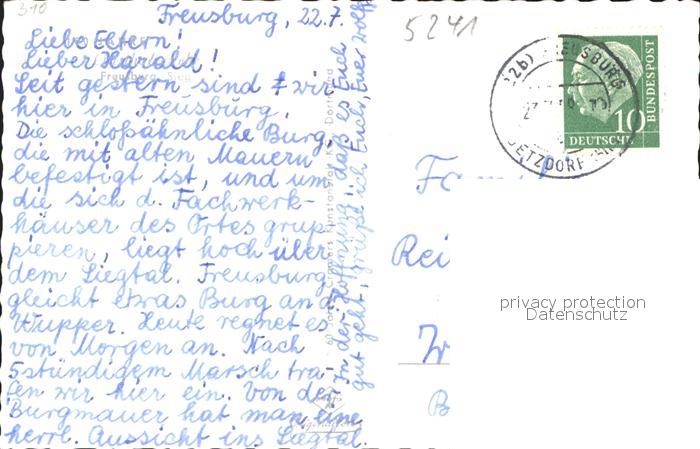 3-10
Freusburg, 22.7.
Liebe Eltern!
Lieber Harald!
Seit gestern sind wir
hier in Freusburg.
Die schloßähnliche Burg,
die mit alten Mauern
befestigt ist, und um
die sich d. Fachwerk-
häuser des Ortes grup-
pieren, liegt hoch über
dem Siegtal. Freusburg
gleicht etwas Burg an d.
Wupper. Heute regnet es
von Morgen an. Nach
5stündigem Marsch tra-
fen wir hier ein. Von der
Burgmauer hat man eine
herrl. Aussicht ins Siegtal.
In der Hoffnung, daß es Euch
gut geht, grüße ich Euch, Euer Wolfg
Cramers Kunstanstalt KG, Dortmund
5241
FREUSBURG
BETZDORF
10
DEUTSCHE
BUNDESPOST
F
Rei
W
B
privacy protection
Datenschutz